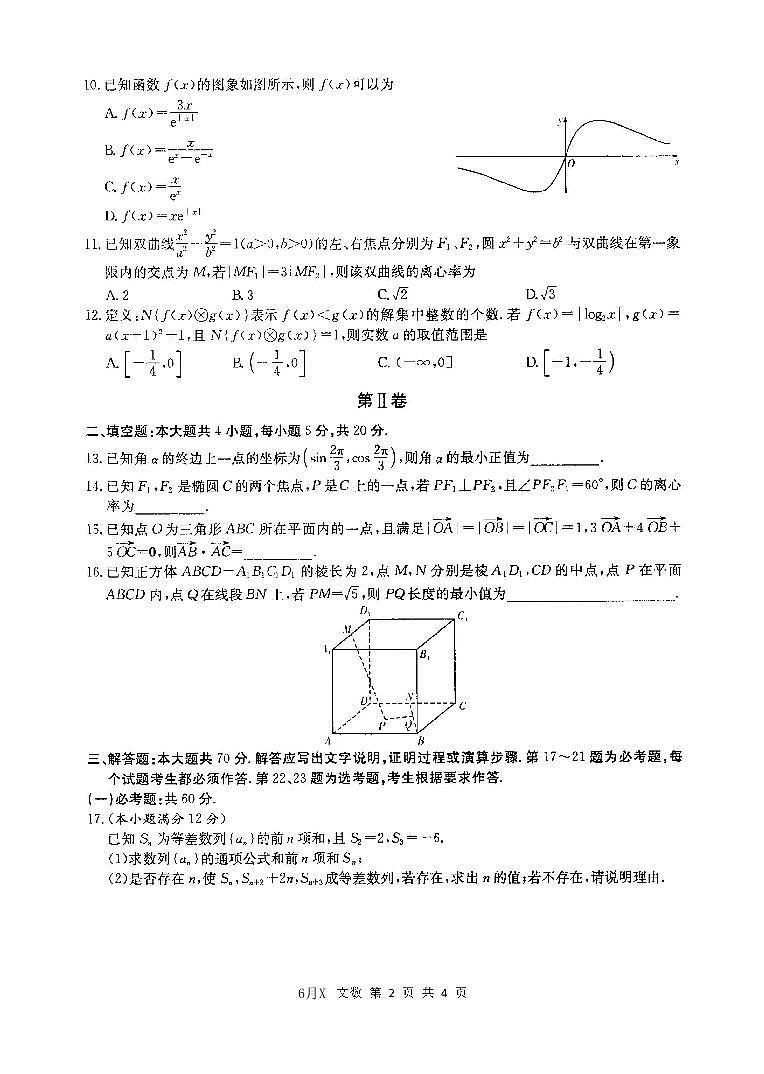 10.已知函数 f(x)的图象如图所示,则 f(x)可以为
A. f(x)=3x/e^|x|
B. f(x)=x/(e^x-e^-x)
C. f(x)=x/e^x
D. f(x)=xe^|x|
y
O
x
11.已知双曲线x²/a²-y²/b²=1(a>0,b>0)的左、右焦点分别为 F₁、F₂,圆 x²+y²=b² 与双曲线在第一象
限内的交点为 M,若|MF₁|=3|MF₂|,则该双曲线的离心率为
A. 2 B. 3 C. √2 D. √3
12.定义:N{f(x)⊗g(x)}表示 f(x)<g(x)的解集中整数的个数.若 f(x)=|log₂x|,g(x)=
a(x-1)²-1,且 N{f(x)⊗g(x)}=1,则实数 a 的取值范围是
A. [-1/4,0] B. (-1/4,0] C. (-∞,0] D. [-1,-1/4)
第Ⅱ卷
二、填空题:本大题共 4 小题,每小题 5 分,共 20 分.
13.已知角 α 的终边上一点的坐标为(sin 2π/3,cos 2π/3),则角 α 的最小正值为________.
14.已知 F₁,F₂ 是椭圆 C 的两个焦点,P 是 C 上的一点,若 PF₁⊥PF₂,且∠PF₂F₁=60°,则 C 的离心
率为________.
15.已知点 O 为三角形 ABC 所在平面内的一点,且满足|OA|=|OB|=|OC|=1,3 OA+4 OB+
5 OC=0,则AB·AC=________.
16.已知正方体 ABCD-A₁B₁C₁D₁ 的棱长为 2,点 M,N 分别是棱 A₁D₁,CD 的中点,点 P 在平面
ABCD 内,点 Q 在线段 BN 上,若 PM=√5,则 PQ 长度的最小值为________.
D₁
C₁
M
A₁
B₁
D
N
C
P
Q
A
B
三、解答题:本大题共 70 分.解答应写出文字说明,证明过程或演算步骤.第 17～21 题为必考题,每
个试题考生都必须作答.第 22、23 题为选考题,考生根据要求作答.
(一)必考题:共 60 分.
17.(本小题满分 12 分)
已知 Sₙ 为等差数列{aₙ}的前 n 项和,且 S₂=2,S₃=-6.
(1)求数列{aₙ}的通项公式和前 n 项和 Sₙ;
(2)是否存在 n,使 Sₙ,Sₙ₊₂+2n,Sₙ₊₃成等差数列,若存在,求出 n 的值;若不存在,请说明理由.
6月X 文数 第 2 页 共 4 页